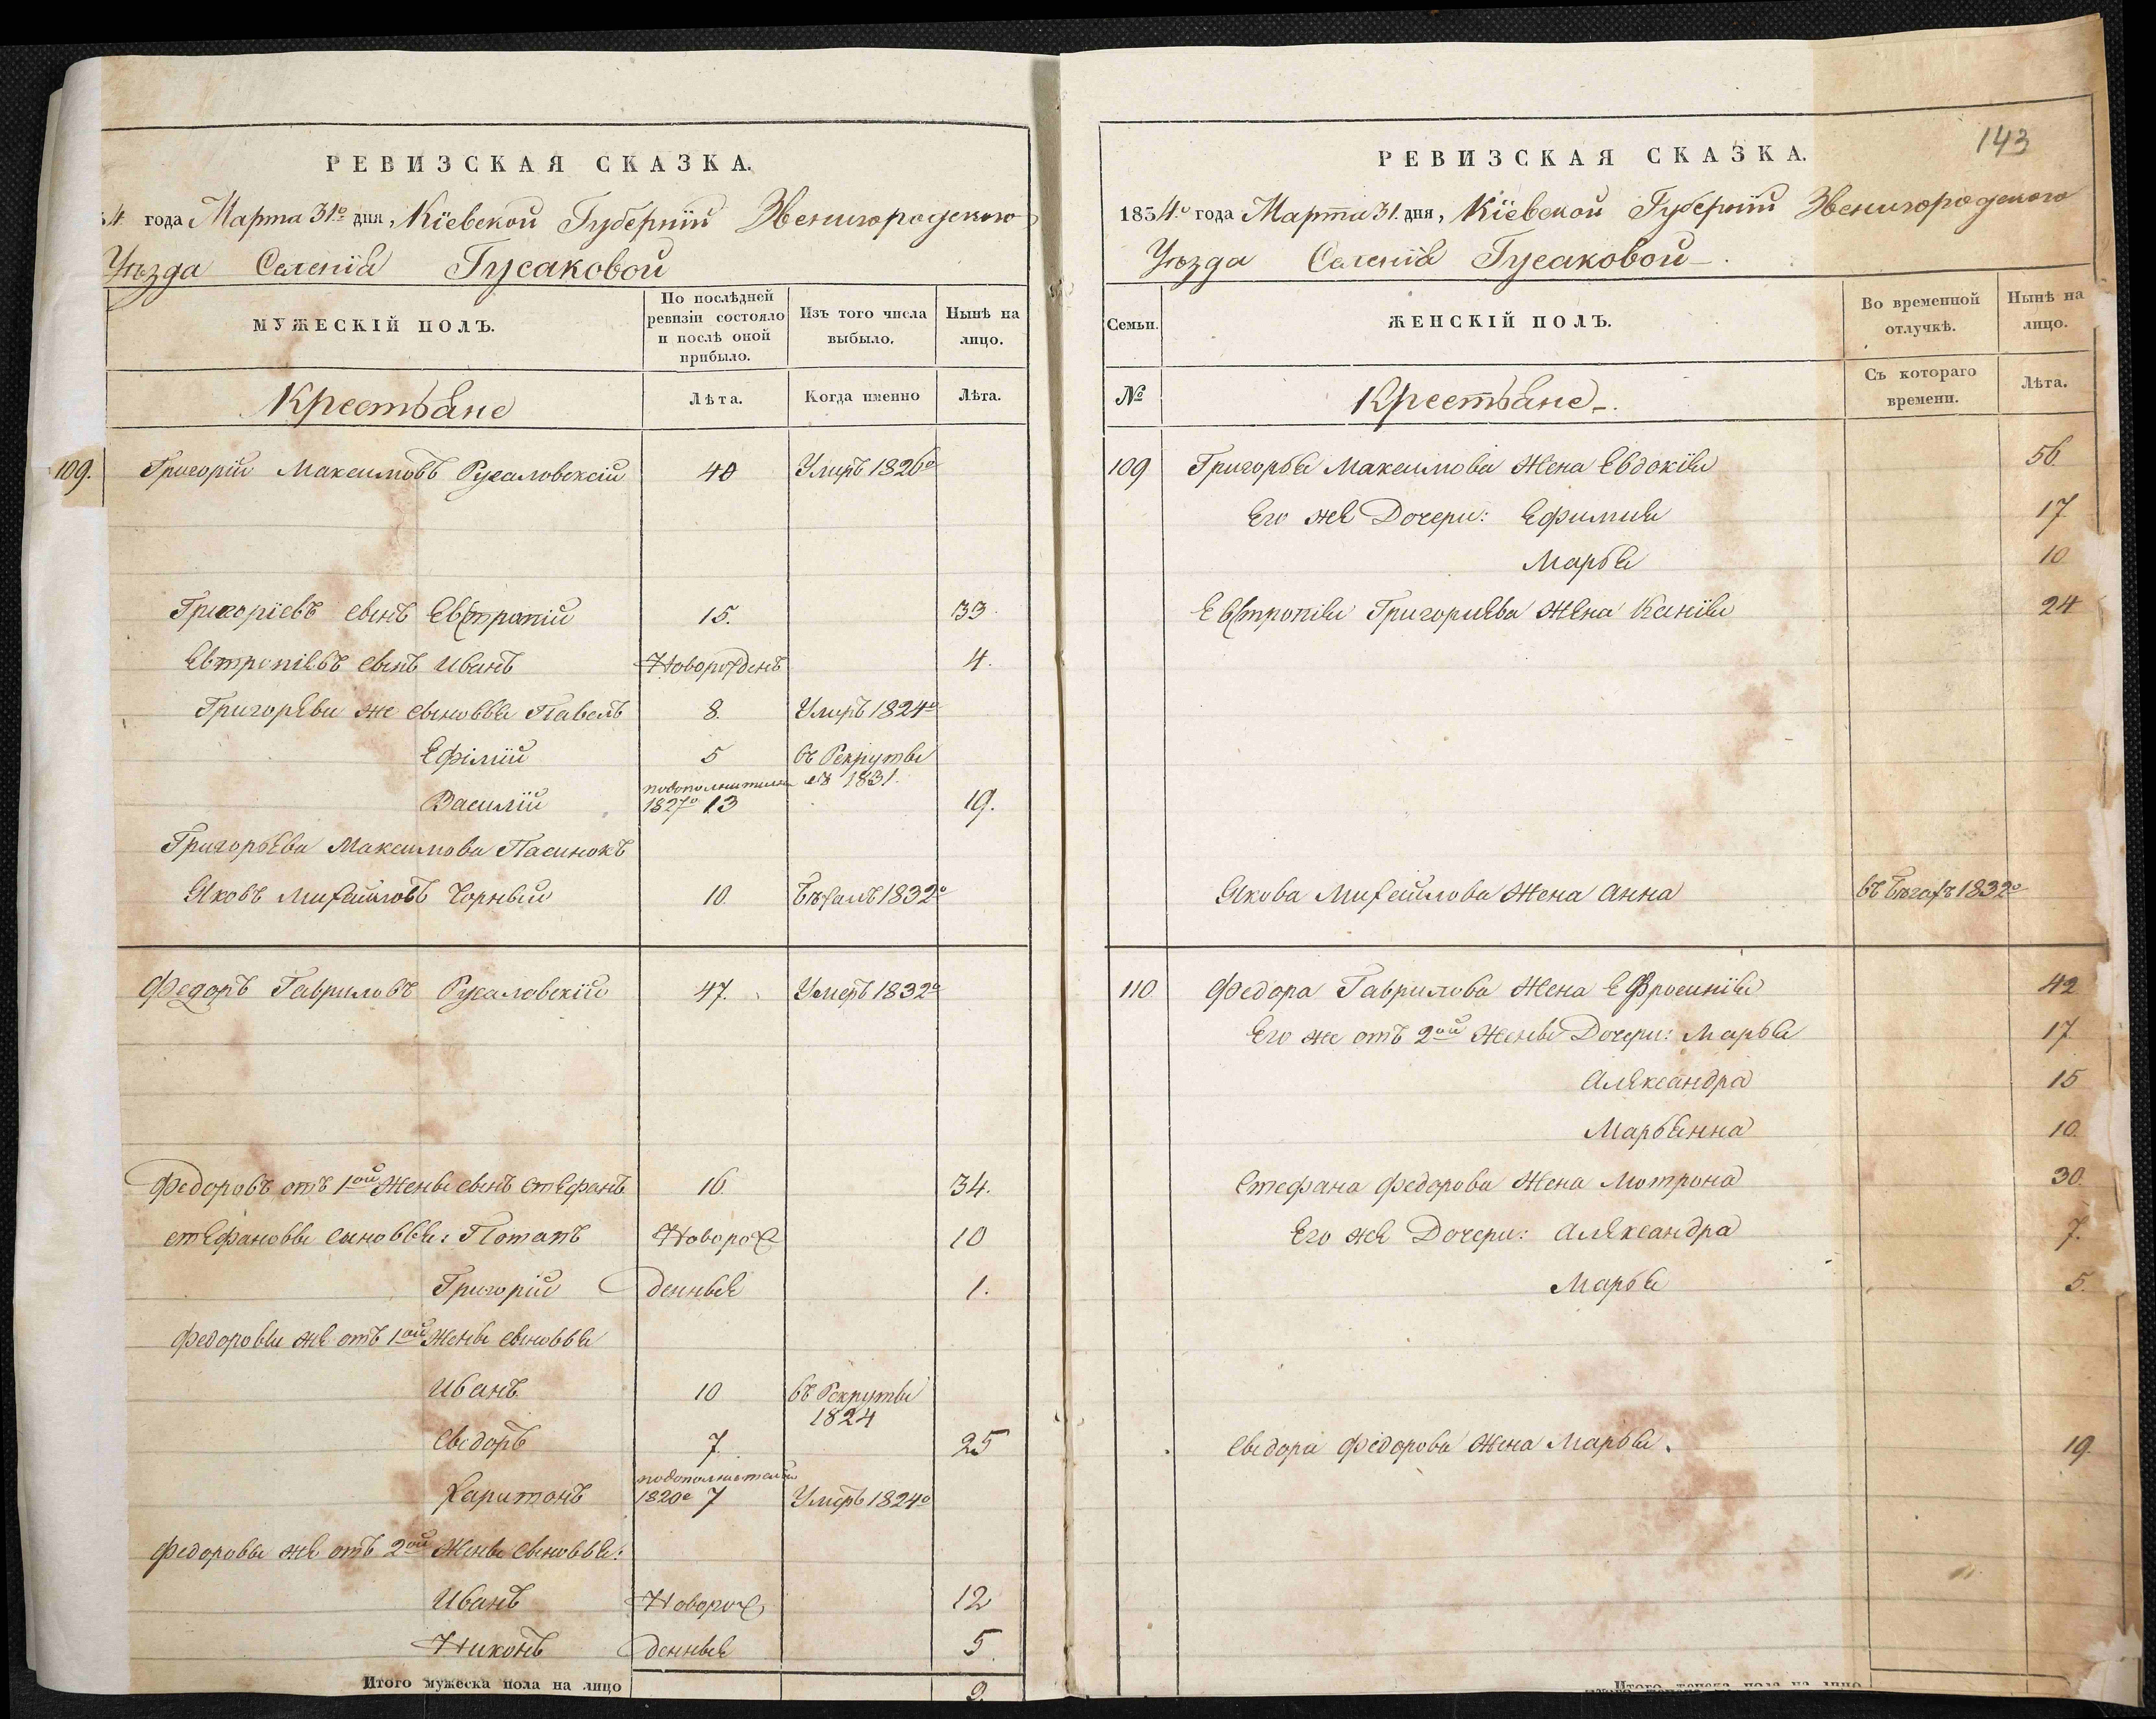 РЕВИЗСКАЯ СКАЗКА.
4 года Марта 31го дня, Кіевской Губерніи Звенигородского
Уѣзда Селенія Гусаковой
МУЖЕСКІЙ ПОЛЪ.
По послѣдней ревизіи состояло и послѣ оной прибыло.
Изъ того числа выбыло.
Нынѣ на лицо.
Крестьяне
Лѣта.
Когда именно
Лѣта.
109. Григорій Максимовъ Русаловскій 40 Умеръ 1826го
Григоріевъ сынъ Евстропій 15. 33.
Евтропіевъ сынъ Иванъ Новорожденъ 4.
Григорьевы же сыновья Павелъ 8. Умеръ 1824го
Ефімій 5 въ Рекруты
въ 1831.
Василій 1827го 13 19.
Григорьева Максимова Пасинокъ
Яковъ Михайловъ Чорный 10. Бѣжалъ 1832го
Федоръ Гавриловъ Русаловскій 47. Умеръ 1832го
Федоровъ отъ 1ой Жены сынъ Стефанъ 16 34.
Стефановы сыновья: Потапъ Новорож 10
Григорій денныя 1.
Федоровы же отъ 1ой Жены сыновья
Иванъ 10 въ Рекруты
1824
Сидоръ 7. 25
Харитонъ 1820го 7 Умеръ 1824го
Федоровы же отъ 2ой Жены сыновья:
Иванъ Новорож 12
Никонъ денныя 5.
Итого мужеска пола на лицо 9
143
РЕВИЗСКАЯ СКАЗКА.
1834го года Марта 31. дня, Кіевской Губерніи Звенигородского
Уѣзда Селенія Гусаковой
Семьи.
ЖЕНСКІЙ ПОЛЪ.
Во временной отлучкѣ.
Нынѣ на лицо.
№
Крестьяне
Съ котораго времени.
Лѣта.
109 Григорья Максимова Жена Евдокія 56
Его же Дочери: Ефимия 17
Марья 10
Евстропія Григориева Жена Ксенія 24
Якова Михайлова Жена Анна въ бѣгахъ 1832го
110 Федора Гаврилова Жена Ефросинія 42
Его же отъ 2ой Жены Дочери: Марья 17
Александра 15
Марьянна 10.
Стефана Федорова Жена Мотрона 30
Его же Дочери: Александра 7.
Марья 5.
Сидора Федорова Жена Марья. 19.
Итого женска пола на лицо